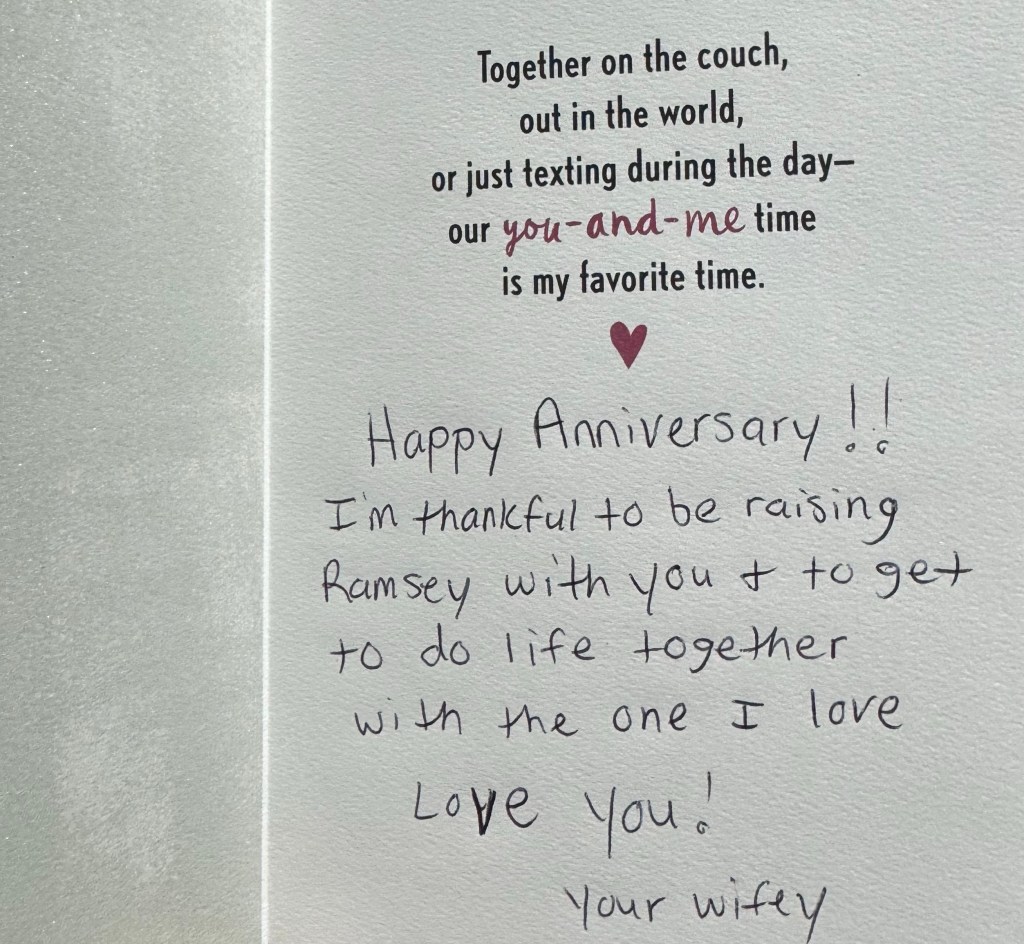 Together on the couch,
out in the world,
or just texting during the day—
our you-and-me time
is my favorite time.
Happy Anniversary!!
I'm thankful to be raising
Ramsey with you + to get
to do life together
with the one I love
Love you!
Your wifey